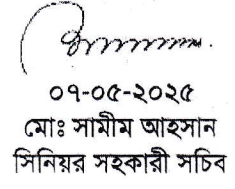 ০৭-০৫-২০২৫
মোঃ সামীম আহসান
সিনিয়র সহকারী সচিব